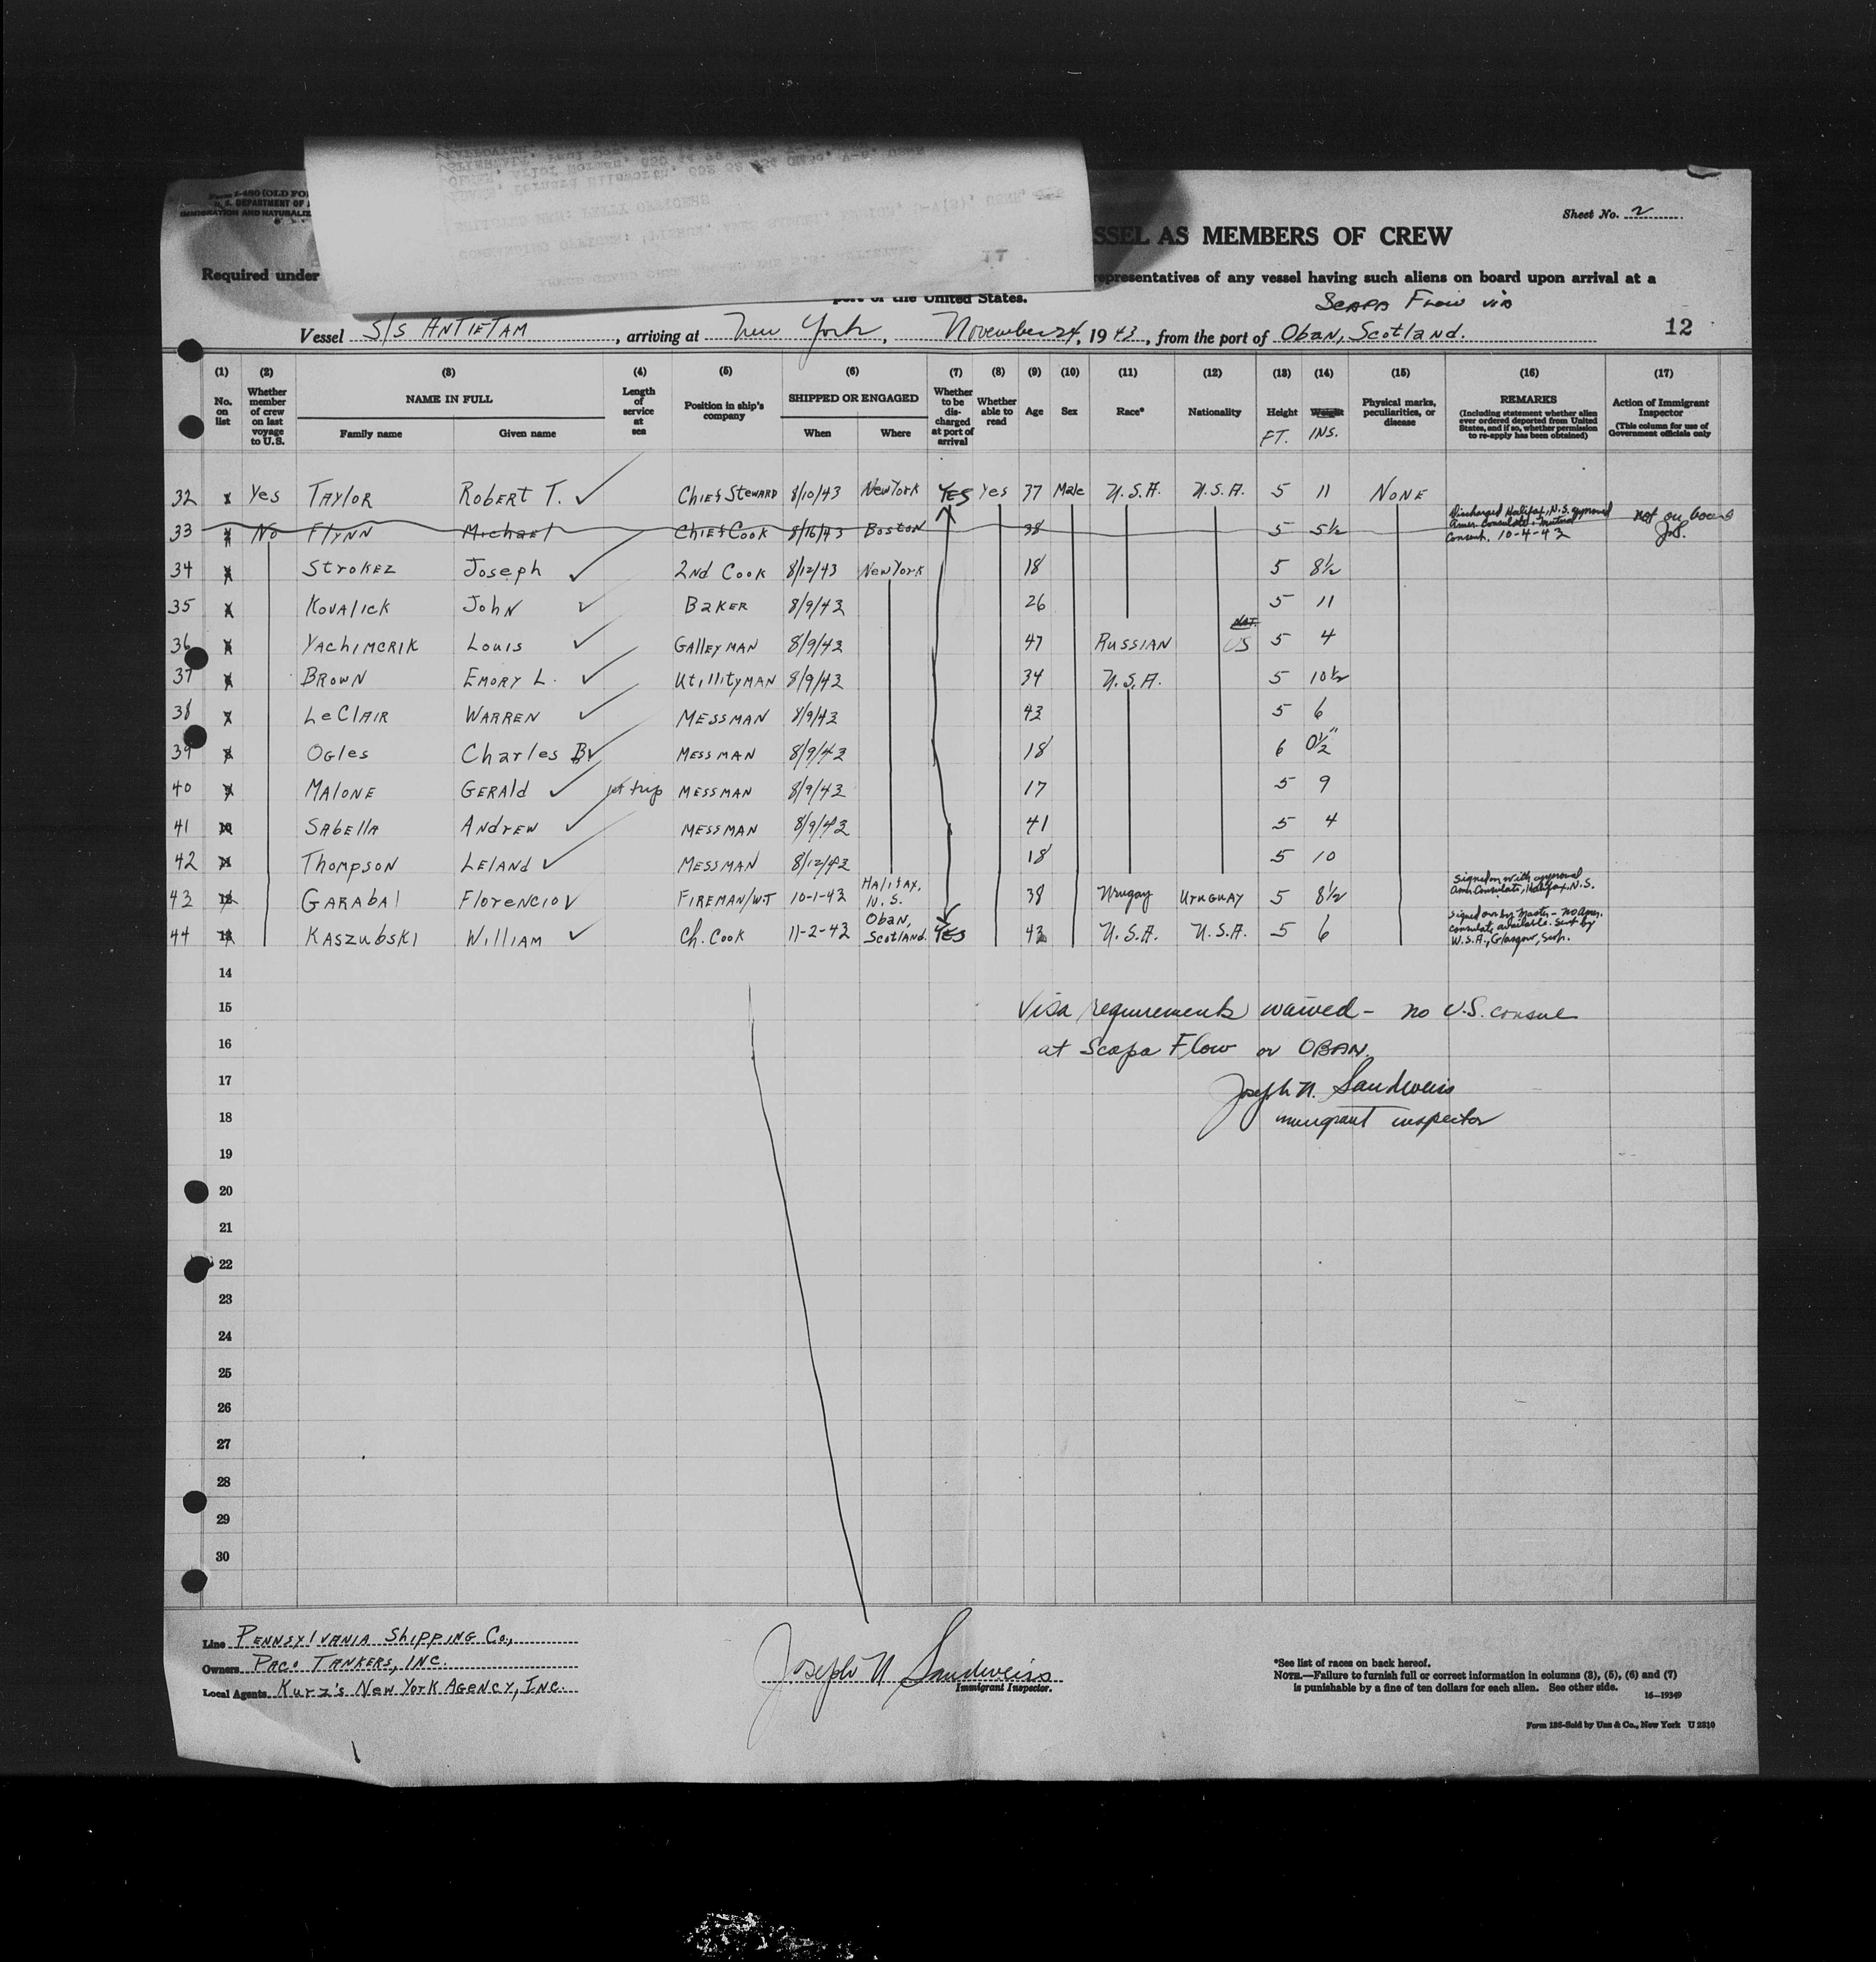 Sheet No. 2
SSEL AS MEMBERS OF CREW
Required under
representatives of any vessel having such aliens on board upon arrival at a
port of the United States.
Scapa Flow via
Vessel S/S Antietam, arriving at New York, November 24, 1943, from the port of Oban, Scotland.
12
(1) (2) (3) (4) (5) (6) (7) (8) (9) (10) (11) (12) (13) (14) (15) (16) (17)
No. on list
Whether member of crew on last voyage to U.S.
NAME IN FULL
Family name
Given name
Length of service at sea
Position in ship's company
SHIPPED OR ENGAGED
When
Where
Whether to be discharged at port of arrival
Whether able to read
Age
Sex
Race*
Nationality
Height
FT.
Weight
INS.
Physical marks, peculiarities, or disease
REMARKS
(Including statement whether alien ever ordered deported from United States, and if so, whether permission to re-apply has been obtained)
Action of Immigrant Inspector
(This column for use of Government officials only
32 Yes Taylor Robert T. Chief Steward 8/10/43 New York Yes Yes 37 Male U.S.A. U.S.A. 5 11 None
33 No Flynn Michael Chief Cook 8/16/43 Boston 38 5 5½ Discharged Halifax, N.S. approved Amer Consulate & mutual Consent. 10-4-43 not on board J.S.
34 Strokez Joseph 2nd Cook 8/12/43 New York 18 5 8½
35 Kovalick John Baker 8/9/43 26 5 11
36 Yachimcrik Louis Galleyman 8/9/43 47 Russian Nat. US 5 4
37 Brown Emory L. Utillityman 8/9/43 34 U.S.A. 5 10½
38 LeClair Warren Messman 8/9/43 43 5 6
39 Ogles Charles B Messman 8/9/43 18 6 0½"
40 Malone Gerald 1st trip Messman 8/9/43 17 5 9
41 Sabella Andrew Messman 8/9/43 41 5 4
42 Thompson Leland Messman 8/12/43 18 5 10
43 12 Garabal Florencio Fireman/WT 10-1-43 Halifax, N.S. 38 Urugay Uruguay 5 8½ Signed on with approval Amer. Consulate, Halifax, N.S.
44 13 Kaszubski William Ch. Cook 11-2-43 Oban, Scotland. Yes 43 U.S.A. U.S.A. 5 6 Signed on by Master - no Amer. consulate available. Sent by W.S.A., Glasgow, Scot.
14
15
Visa requirements waived - no U.S. consul
16
at Scapa Flow or OBAN.
17
Joseph N. Sandweiss
18
immigrant inspector
19
20
21
22
23
24
25
26
27
28
29
30
Line Pennsylvania Shipping Co.,
Owners Paco Tankers, Inc.
Local Agents Kurz's New York Agency, Inc.
Joseph N Sandweiss
Immigrant Inspector.
*See list of races on back hereof.
NOTE.—Failure to furnish full or correct information in columns (3), (5), (6) and (7)
is punishable by a fine of ten dollars for each alien. See other side.
16—19349
Form 135-Sold by Unz & Co., New York U 2310